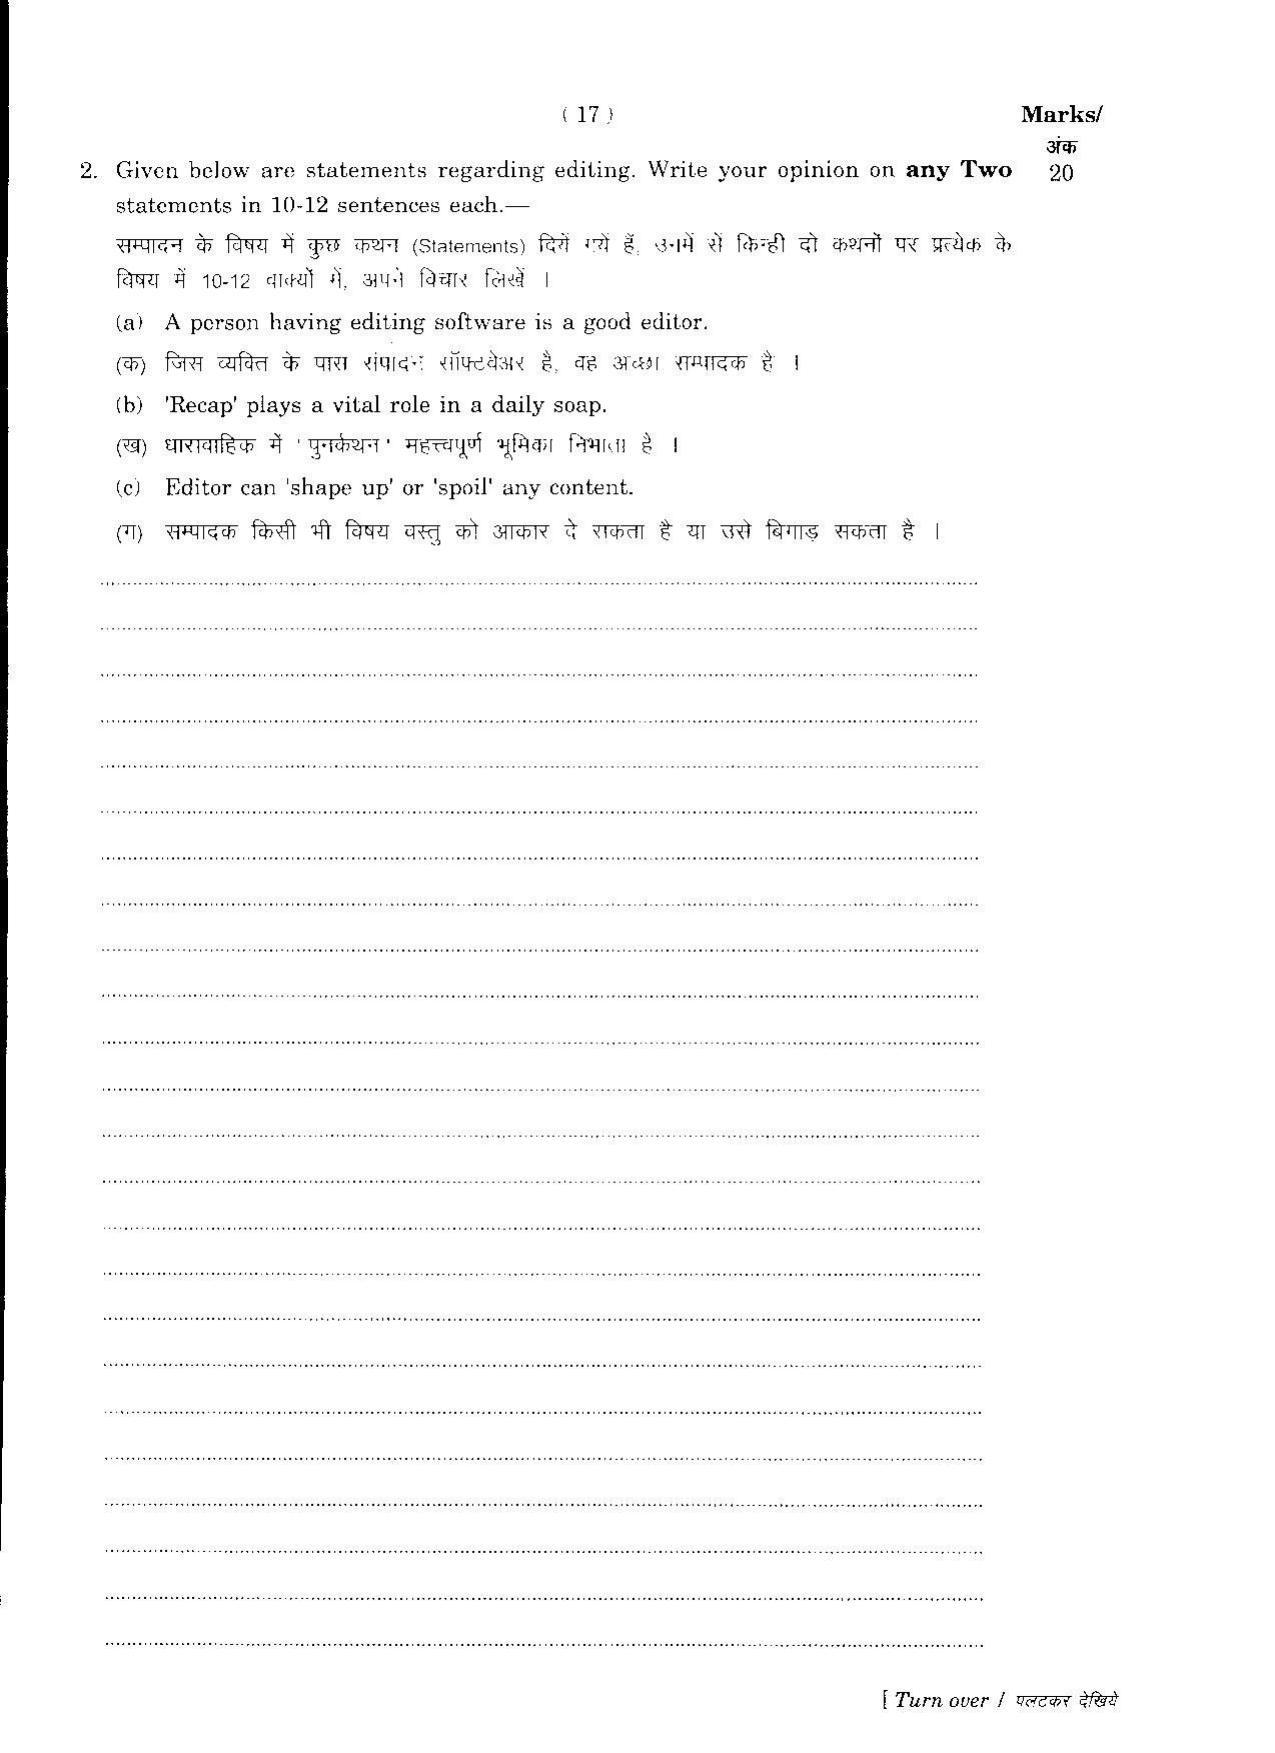 ( 17 )
Marks/
अंक
2. Given below are statements regarding editing. Write your opinion on any Two 20
statements in 10-12 sentences each.—
सम्पादन के विषय में कुछ कथन (Statements) दियें गयें हैं, उनमें सें किन्ही दो कथनों पर प्रत्येक के
विषय में 10-12 वाक्यों में, अपने विचार लिखें ।
(a) A person having editing software is a good editor.
(क) जिस व्यक्ति के पास संपादन सॉफ्टवेअर है, वह अच्छा सम्पादक है ।
(b) 'Recap' plays a vital role in a daily soap.
(ख) धारावाहिक में 'पुनर्कथन' महत्त्वपूर्ण भूमिका निभाता है ।
(c) Editor can 'shape up' or 'spoil' any content.
(ग) सम्पादक किसी भी विषय वस्तु को आकार दे सकता है या उसे बिगाड़ सकता है ।
[ Turn over / पलटकर देखिये